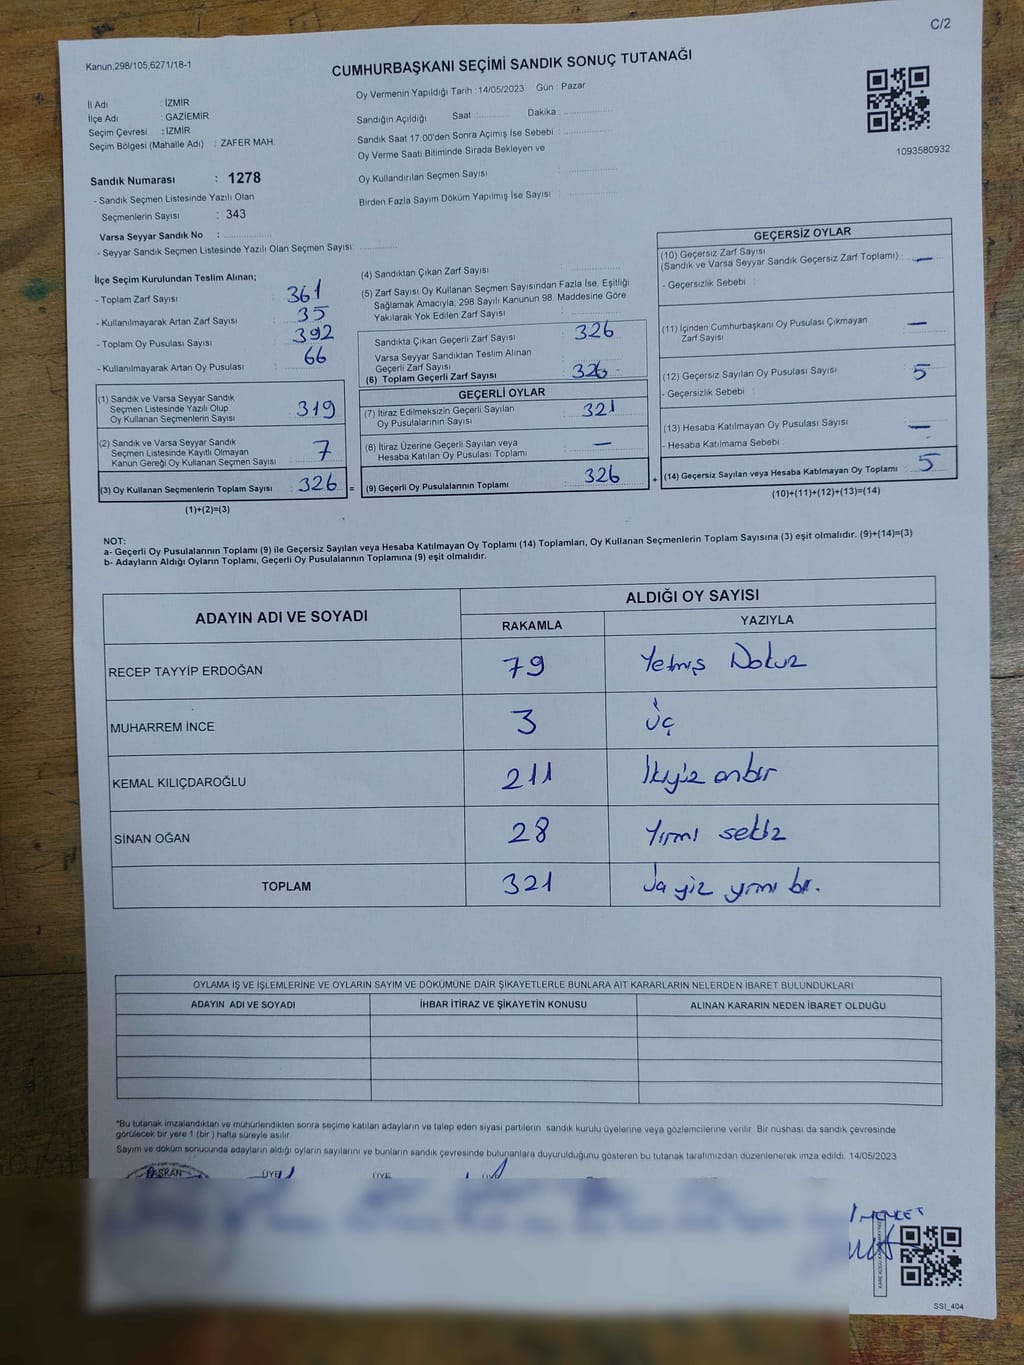 C/2
Kanun,298/105,6271/18-1
CUMHURBAŞKANI SEÇİMİ SANDIK SONUÇ TUTANAĞI
İl Adı : İZMİR
İlçe Adı : GAZİEMİR
Seçim Çevresi : İZMİR
Seçim Bölgesi (Mahalle Adı) : ZAFER MAH.
Sandık Numarası : 1278
- Sandık Seçmen Listesinde Yazılı Olan
Seçmenlerin Sayısı : 343
Varsa Seyyar Sandık No :
- Seyyar Sandık Seçmen Listesinde Yazılı Olan Seçmen Sayısı:
Oy Vermenin Yapıldığı Tarih : 14/05/2023 Gün : Pazar
Sandığın Açıldığı Saat : Dakika :
Sandık Saat 17:00'den Sonra Açımış İse Sebebi :
Oy Verme Saati Bitiminde Sırada Bekleyen ve
Oy Kullandırılan Seçmen Sayısı :
Birden Fazla Sayım Döküm Yapılmış İse Sayısı :
1093580932
İlçe Seçim Kurulundan Teslim Alınan;
- Toplam Zarf Sayısı : 361
- Kullanılmayarak Artan Zarf Sayısı : 35
- Toplam Oy Pusulası Sayısı : 392
- Kullanılmayarak Artan Oy Pusulası : 66
(1) Sandık ve Varsa Seyyar Sandık
Seçmen Listesinde Yazılı Olup
Oy Kullanan Seçmenlerin Sayısı : 319
(2) Sandık ve Varsa Seyyar Sandık
Seçmen Listesinde Kayıtlı Olmayan
Kanun Gereği Oy Kullanan Seçmen Sayısı : 7
(3) Oy Kullanan Seçmenlerin Toplam Sayısı : 326 =
(1)+(2)=(3)
(4) Sandıktan Çıkan Zarf Sayısı :
(5) Zarf Sayısı Oy Kullanan Seçmen Sayısından Fazla İse, Eşitliği
Sağlamak Amacıyla, 298 Sayılı Kanunun 98. Maddesine Göre
Yakılarak Yok Edilen Zarf Sayısı :
Sandıkta Çıkan Geçerli Zarf Sayısı : 326
Varsa Seyyar Sandıktan Teslim Alınan
Geçerli Zarf Sayısı :
(6) Toplam Geçerli Zarf Sayısı : 326
GEÇERLİ OYLAR
(7) İtiraz Edilmeksizin Geçerli Sayılan
Oy Pusulalarının Sayısı : 321
(8) İtiraz Üzerine Geçerli Sayılan veya
Hesaba Katılan Oy Pusulası Toplamı : —
(9) Geçerli Oy Pusulalarının Toplamı : 326 +
GEÇERSİZ OYLAR
(10) Geçersiz Zarf Sayısı
(Sandık ve Varsa Seyyar Sandık Geçersiz Zarf Toplamı) : —
- Geçersizlik Sebebi :
(11) İçinden Cumhurbaşkanı Oy Pusulası Çıkmayan
Zarf Sayısı : —
(12) Geçersiz Sayılan Oy Pusulası Sayısı : 5
- Geçersizlik Sebebi :
(13) Hesaba Katılmayan Oy Pusulası Sayısı : —
- Hesaba Katılmama Sebebi :
(14) Geçersiz Sayılan veya Hesaba Katılmayan Oy Toplamı : 5
(10)+(11)+(12)+(13)=(14)
NOT:
a- Geçerli Oy Pusulalarının Toplamı (9) ile Geçersiz Sayılan veya Hesaba Katılmayan Oy Toplamı (14) Toplamları, Oy Kullanan Seçmenlerin Toplam Sayısına (3) eşit olmalıdır. (9)+(14)=(3)
b- Adayların Aldığı Oyların Toplamı, Geçerli Oy Pusulalarının Toplamına (9) eşit olmalıdır.
ADAYIN ADI VE SOYADI ALDIĞI OY SAYISI
RAKAMLA YAZIYLA
RECEP TAYYİP ERDOĞAN 79 Yetmiş Dokuz
MUHARREM İNCE 3 üç
KEMAL KILIÇDAROĞLU 211 İkiyüz onbir
SİNAN OĞAN 28 Yirmi sekiz
TOPLAM 321 üç yüz yirmi bir.
OYLAMA İŞ VE İŞLEMLERİNE VE OYLARIN SAYIM VE DÖKÜMÜNE DAİR ŞİKAYETLERLE BUNLARA AİT KARARLARIN NELERDEN İBARET BULUNDUKLARI
ADAYIN ADI VE SOYADI İHBAR İTİRAZ VE ŞİKAYETİN KONUSU ALINAN KARARIN NEDEN İBARET OLDUĞU
*Bu tutanak imzalandıktan ve mühürlendikten sonra seçime katılan adayların ve talep eden siyasi partilerin sandık kurulu üyelerine veya gözlemcilerine verilir. Bir nüshası da sandık çevresinde
görülecek bir yere 1 (bir) hafta süreyle asılır.
Sayım ve döküm sonucunda adayların aldığı oyların sayılarını ve bunların sandık çevresinde bulunanlara duyurulduğunu gösteren bu tutanak tarafımızdan düzenlenerek imza edildi. 14/05/2023
BAŞKAN ÜYE ÜYE
SSI_404